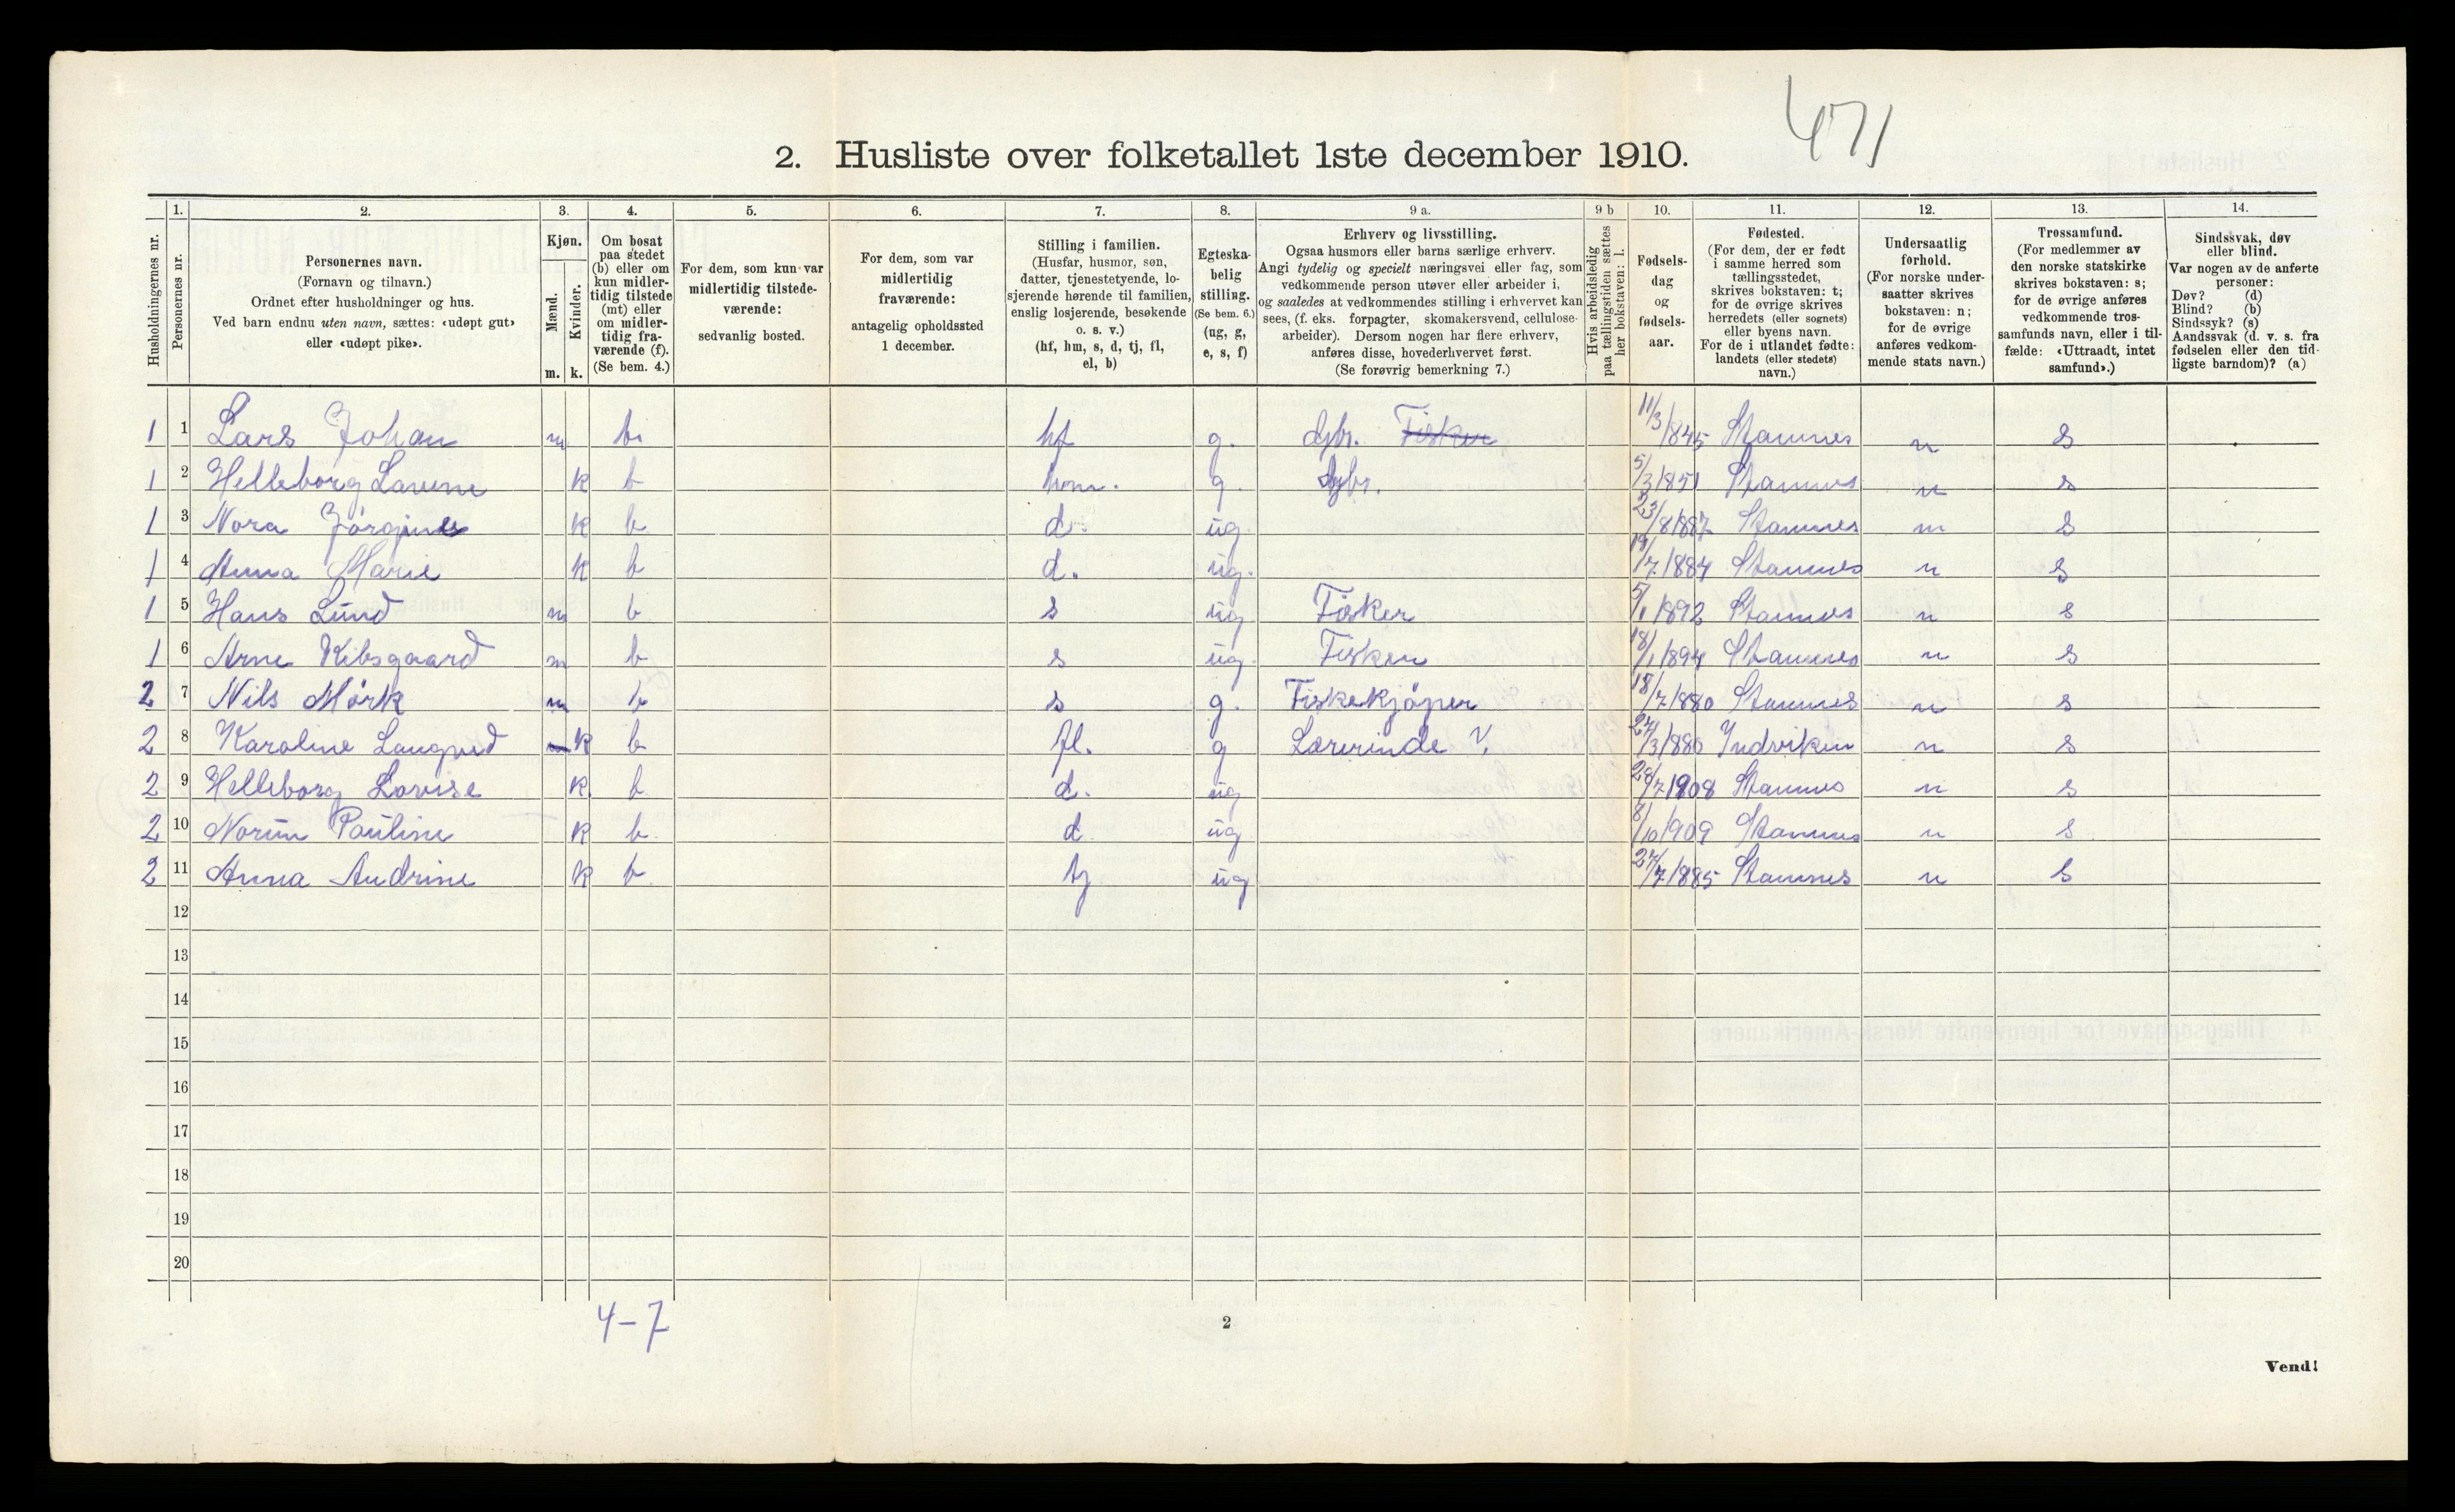 471
2. Husliste over folketallet 1ste december 1910.
Husholdningernes nr.
1.
Personernes nr.
2.
Personernes navn.
(Fornavn og tilnavn.)
Ordnet efter husholdninger og hus.
Ved barn endnu uten navn, sættes: «udøpt gut»
eller «udøpt pike».
3.
Kjøn.
Mænd.
Kvinder.
m. k.
4.
Om bosat
paa stedet
(b) eller om
kun midler-
tidig tilstede
(mt) eller
om midler-
tidig fra-
værende (f).
(Se bem. 4.)
5.
For dem, som kun var
midlertidig tilstede-
værende:
sedvanlig bosted.
6.
For dem, som var
midlertidig
fraværende:
antagelig opholdssted
1 december.
7.
Stilling i familien.
(Husfar, husmor, søn,
datter, tjenestetyende, lo-
sjerende hørende til familien,
enslig losjerende, besøkende
o. s. v.)
(hf, hm, s, d, tj, fl,
el, b)
8.
Egteska-
belig
stilling.
(Se bem. 6.)
(ug, g,
e, s, f)
9 a.
Erhverv og livsstilling.
Ogsaa husmors eller barns særlige erhverv.
Angi tydelig og specielt næringsvei eller fag, som
vedkommende person utøver eller arbeider i,
og saaledes at vedkommendes stilling i erhvervet kan
sees, (f. eks. forpagter, skomakersvend, cellulose-
arbeider). Dersom nogen har flere erhverv,
anføres disse, hovederhvervet først.
(Se forøvrig bemerkning 7.)
9 b
Hvis arbeidsledig
paa tællingstiden sættes
her bokstaven: l.
10.
Fødsels-
dag
og
fødsels-
aar.
11.
Fødested.
(For dem, der er født
i samme herred som
tællingsstedet,
skrives bokstaven: t;
for de øvrige skrives
herredets (eller sognets)
eller byens navn.
For de i utlandet fødte:
landets (eller stedets)
navn.)
12.
Undersaatlig
forhold.
(For norske under-
saatter skrives
bokstaven: n;
for de øvrige
anføres vedkom-
mende stats navn.)
13.
Trossamfund.
(For medlemmer av
den norske statskirke
skrives bokstaven: s;
for de øvrige anføres
vedkommende tros-
samfunds navn, eller i til-
fælde: «Uttraadt, intet
samfund».)
14.
Sindssvak, døv
eller blind.
Var nogen av de anførte
personer:
Døv? (d)
Blind? (b)
Sindssyk? (s)
Aandssvak (d. v. s. fra
fødselen eller den tid-
ligste barndom)? (a)
1 1 Lars Johan m b hf g. Gbr. Fisker 11/3/845 Stamnes n s
1 2 Helleborg Lavine k b hm. g. Gbr. 5/3 1851 Stamnes n s
1 3 Nora Jørgine k b d. ug. 23/8 1887 Stamnes n s
1 4 Anna Marie k b d. ug. 19/7 1884 Stamnes n s
1 5 Hans Lund m b s ug Fisker 5/1 1892 Stamnes n s
1 6 Arne Kibsgaard m b s ug. Fisker 18/1 1894 Stamnes n s
2 7 Nils Mørk m b s g. Fiskekjøper 18/7 1880 Stamnes n s
2 8 Karoline Langved k b fl. g Lærerinde V. 27/3 1880 Indviken n s
2 9 Helleborg Lovise k. b d. ug 28/7 1908 Stamnes n s
2 10 Norun Pauline k b. d. ug 8/10 1909 Stamnes n s
2 11 Anna Andrine k b tj ug 27/7 1885 Stamnes n s
12
13
14
15
16
17
18
19
20
4-7
2
Vend!